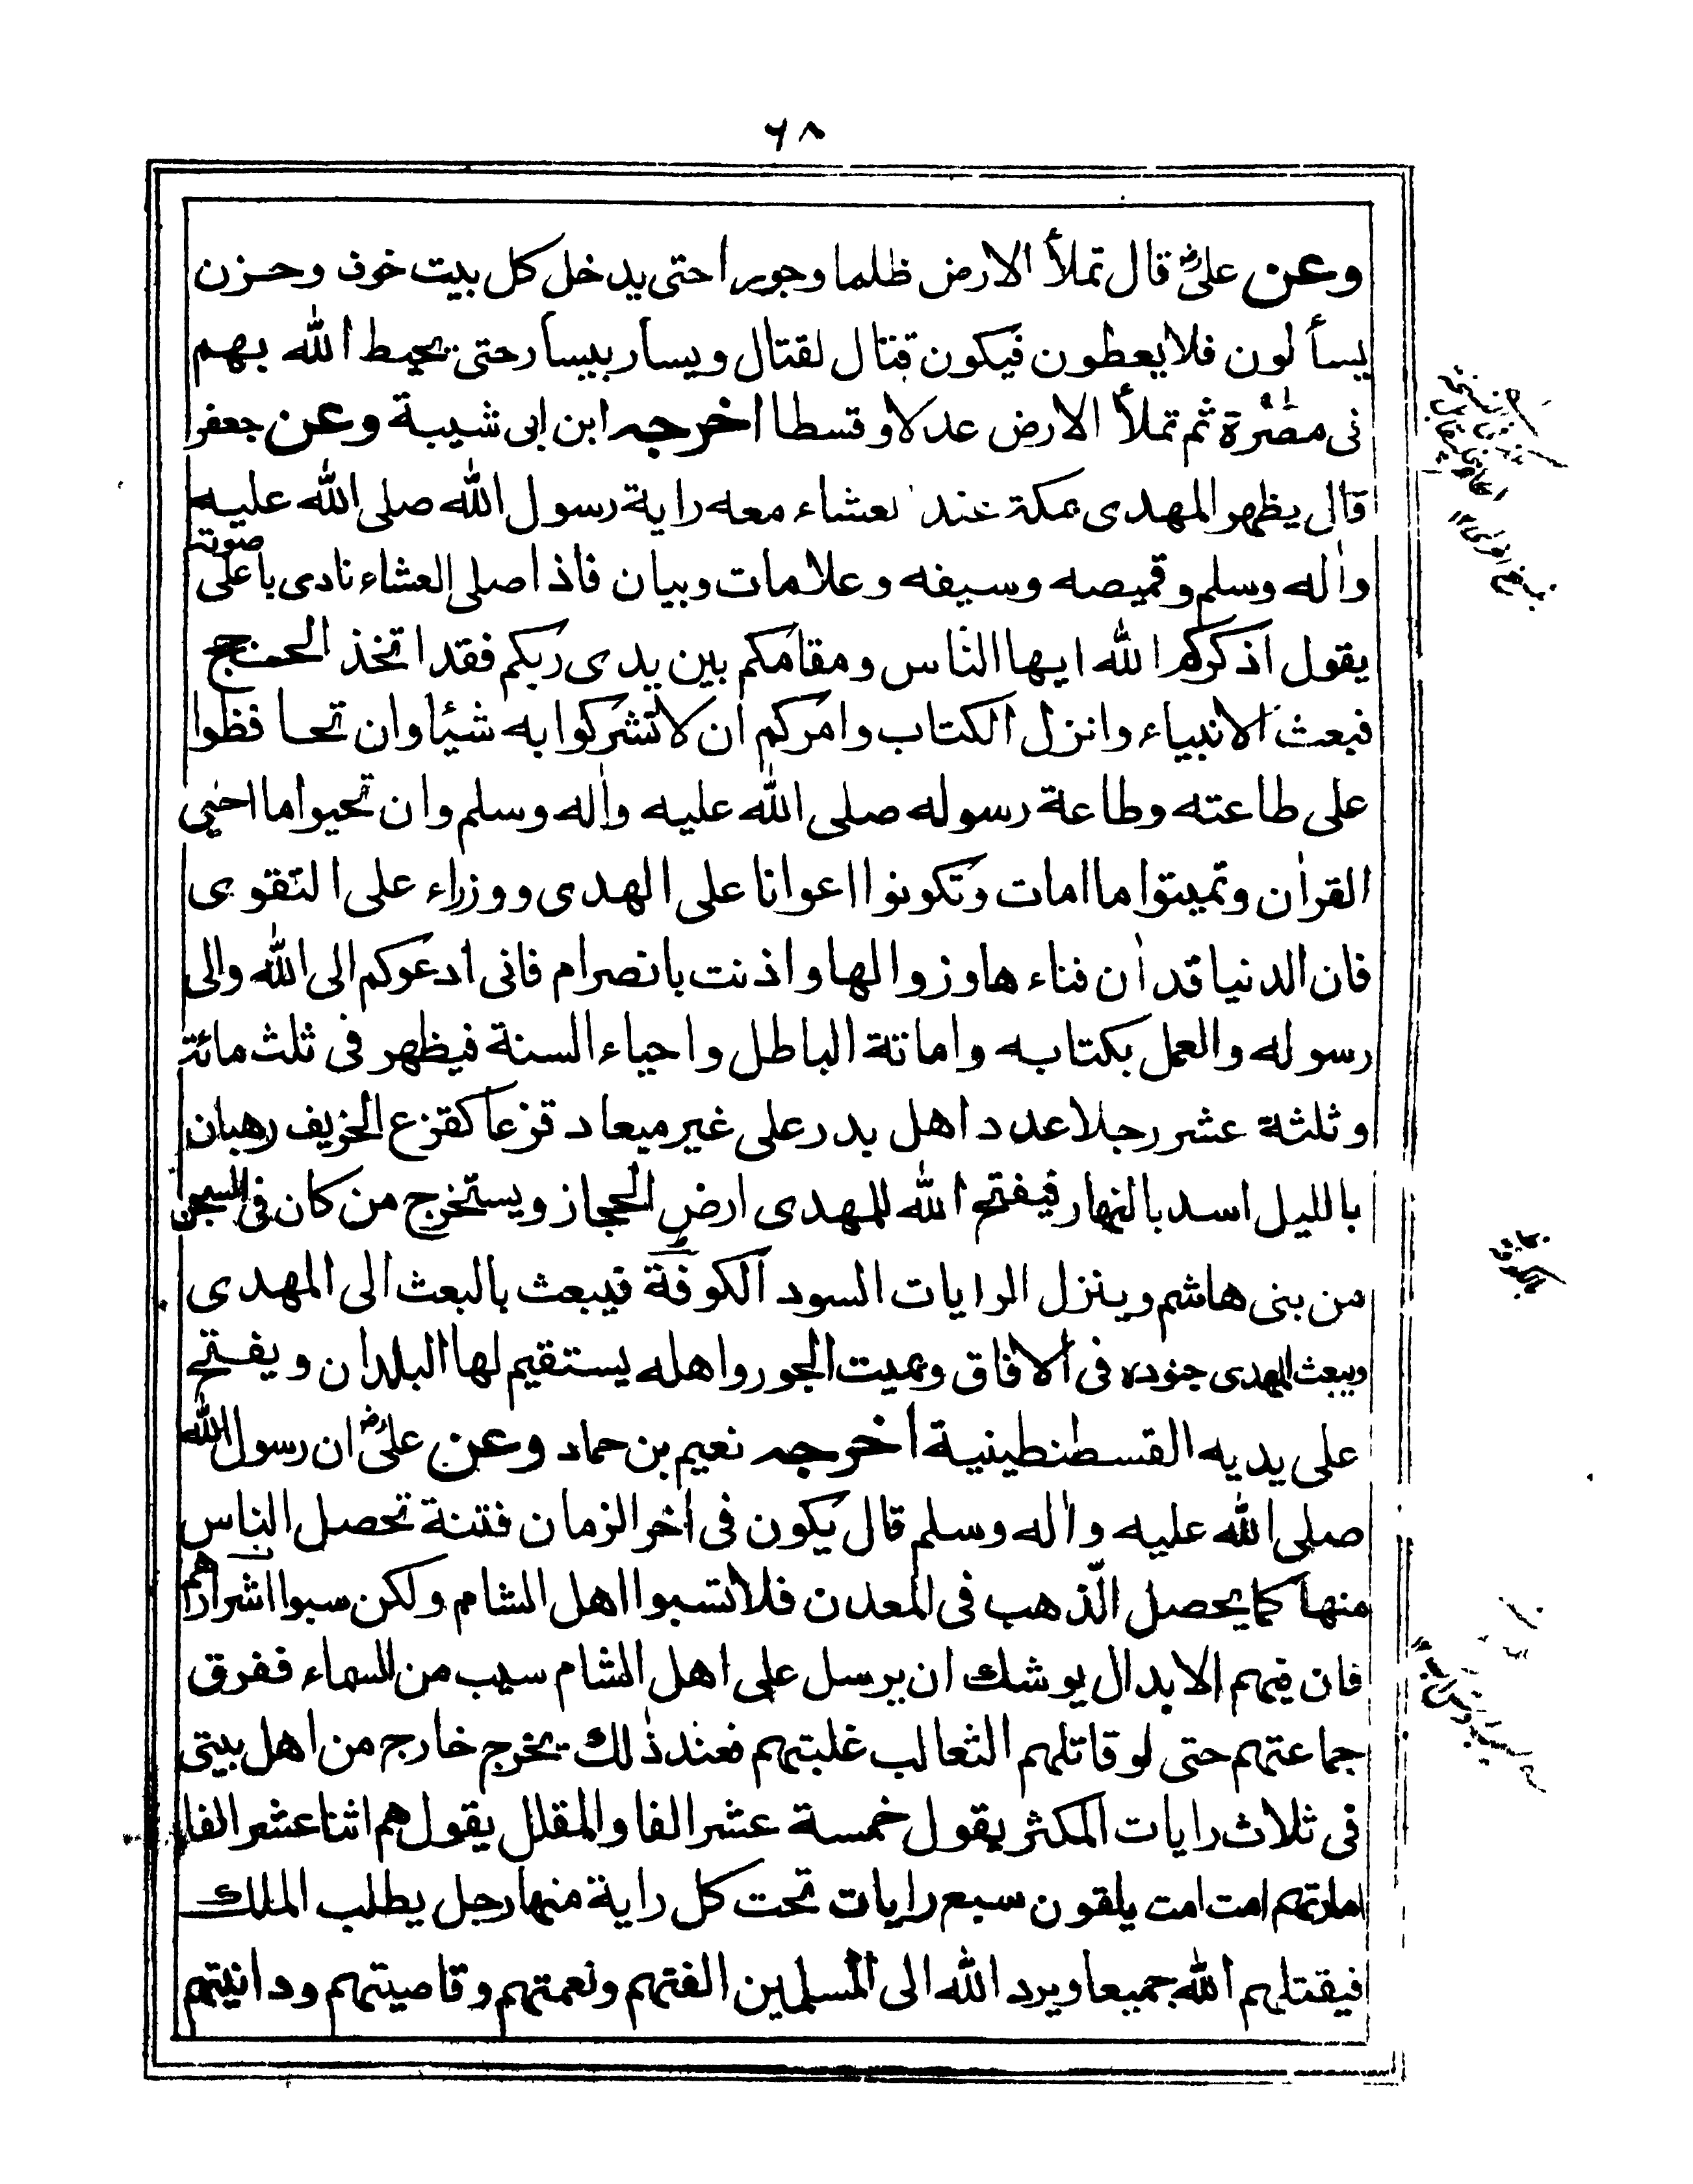 ٦٨
وعن علیؓ قال تملأ الارض ظلما وجورا حتی یدخل کل بیت خوف وحزن
یسألون فلا یعطون فیکون قتال لقتال ویسار بیسار حتی یحیط الله بهم
فی مصره ثم تملأ الارض عدلا وقسطا اخرجه ابن ابی شیبة وعن جعفر
قال یظهر المهدی بمکة عند العشاء معه رایة رسول الله صلی الله علیه
واٰله وسلم وقمیصه وسیفه وعلامات وبیان فاذا صلی العشاء نادی باعلی صوته
یقول اذکرکم الله ایها الناس ومقامکم بین یدی ربکم فقد اتخذ الحجج
فبعث الانبیاء وانزل الکتاب وامرکم ان لا تشرکوا به شیئا وان تحافظوا
علی طاعته وطاعة رسوله صلی الله علیه واٰله وسلم وان تحیوا ما احیی
القراٰن وتمیتوا ما امات وتکونوا اعوانا علی الهدی ووزراء علی التقوی
فان الدنیا قد اٰن فناء ها وزوالها واذنت بانصرام فانی ادعوکم الی الله والی
رسوله والعمل بکتابه واماتة الباطل واحیاء السنة فیظهر فی ثلث مائة
وثلثة عشر رجلا عدد اهل بدر علی غیر میعاد قزعا کقزع الخریف رهبان
باللیل اسد بالنهار فیفتح الله للمهدی ارض الحجاز ویستخرج من کان فی السجن
من بنی هاشم وینزل الرایات السود الکوفة فیبعث بالبعث الی المهدی
ویبعث المهدی جنوده فی الافاق ویمیت الجور واهله یستقیم لها البلدان ویفتح
علی یدیه القسطنطینیة اخرجه نعیم بن حماد وعن علیؓ ان رسول الله
صلی الله علیه واٰله وسلم قال یکون فی اٰخر الزمان فتنة تحصل الناس
منها کما یحصل الذهب فی المعدن فلا تسبوا اهل الشام ولکن سبوا اشرارهم
فان فیهم الابدال یوشك ان یرسل علی اهل الشام سیب من السماء ففرق
جماعتهم حتی لو قاتلهم الثعالب غلبتهم فعند ذٰلك یخرج خارج من اهل بیتی
فی ثلاث رایات المکثر یقول خمسة عشر الفا والمقلل یقول هم اثنا عشر الفا
امارتهم امت امت یلقون سبع رایات تحت کل رایة منها رجل یطلب الملك
فیقتلهم الله جمیعا ویرد الله الی المسلمین الفتهم ونعمتهم وقاصیتهم ودانیتهم